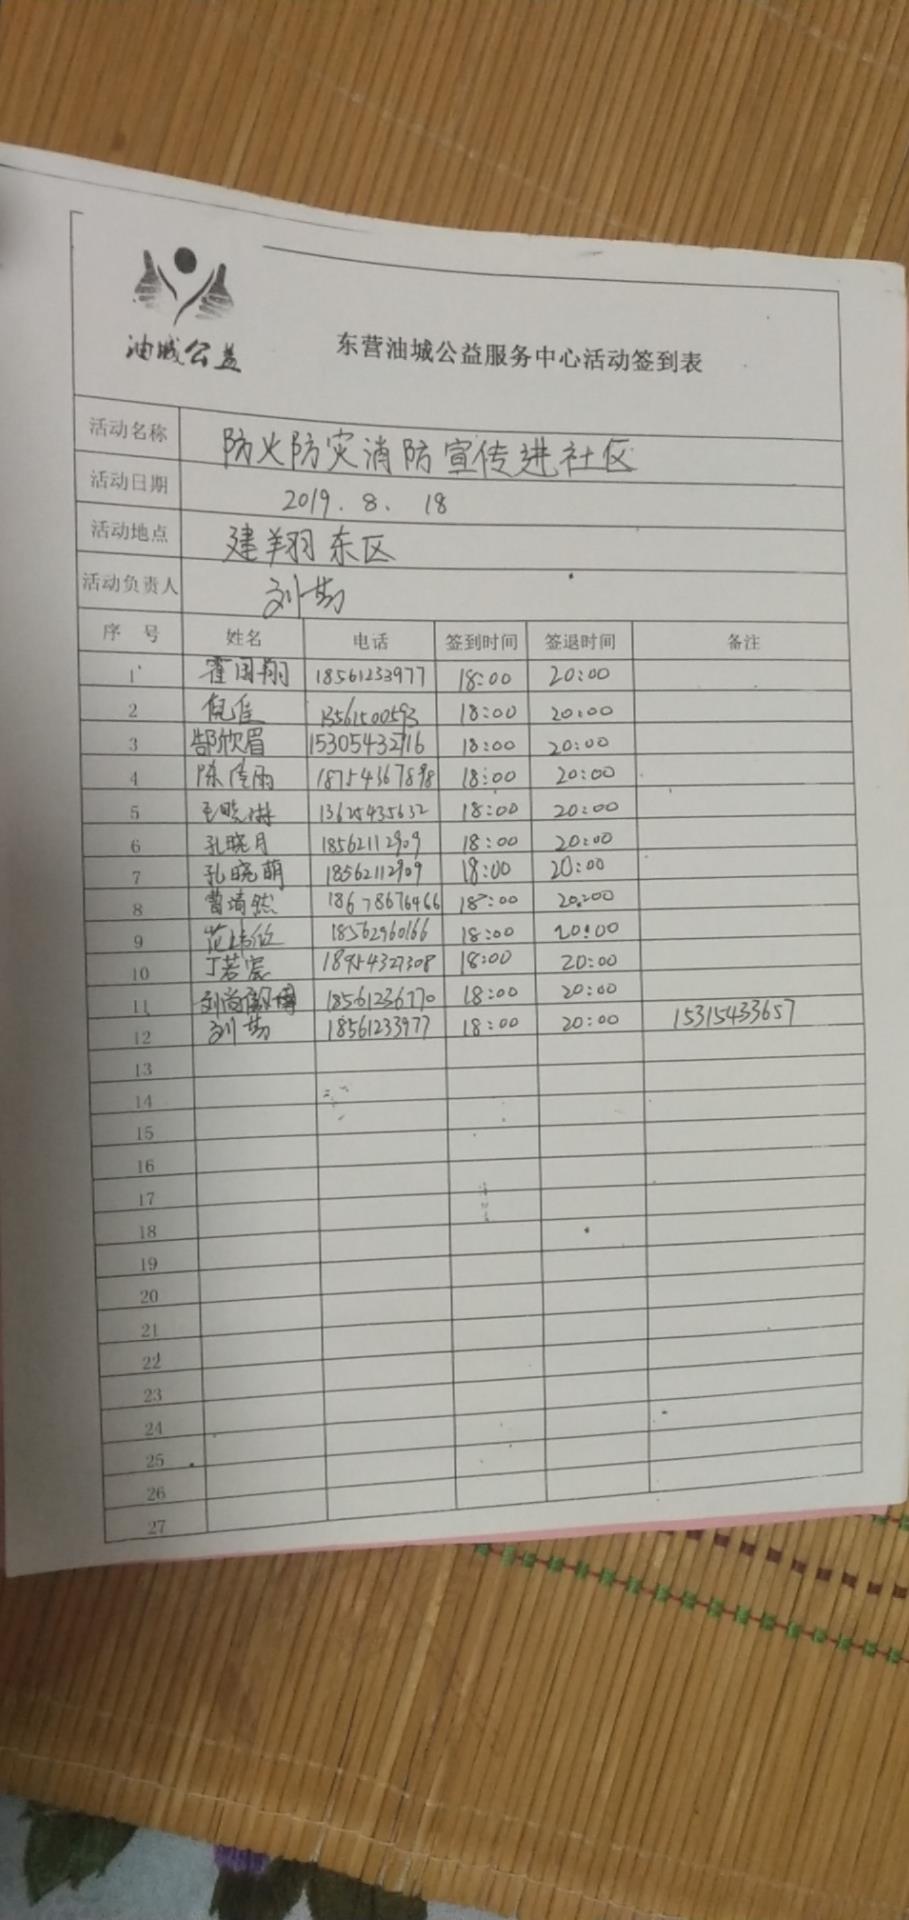 油城公益
东营油城公益服务中心活动签到表
活动名称 防火防灾消防宣传进社区
活动日期 2019.8.18
活动地点 建翔东区
活动负责人 刘芳
序号 姓名 电话 签到时间 签退时间 备注
1 霍国翔 18561233977 18:00 20:00
2 倪佳 13561500593 18:00 20:00
3 郜欣眉 15305432716 18:00 20:00
4 陈佳雨 18754367898 18:00 20:00
5 毛晓琳 13625435632 18:00 20:00
6 孔晓月 18562112909 18:00 20:00
7 孔晓萌 18562112909 18:00 20:00
8 曹清然 18678676466 18:00 20:00
9 18562960166 18:00 20:00
10 丁若宸 18954327308 18:00 20:00
11 刘尚 博 18561236770 18:00 20:00
12 刘芳 18561233977 18:00 20:00 15315433657
13
14
15
16
17
18
19
20
21
22
23
24
25
26
27